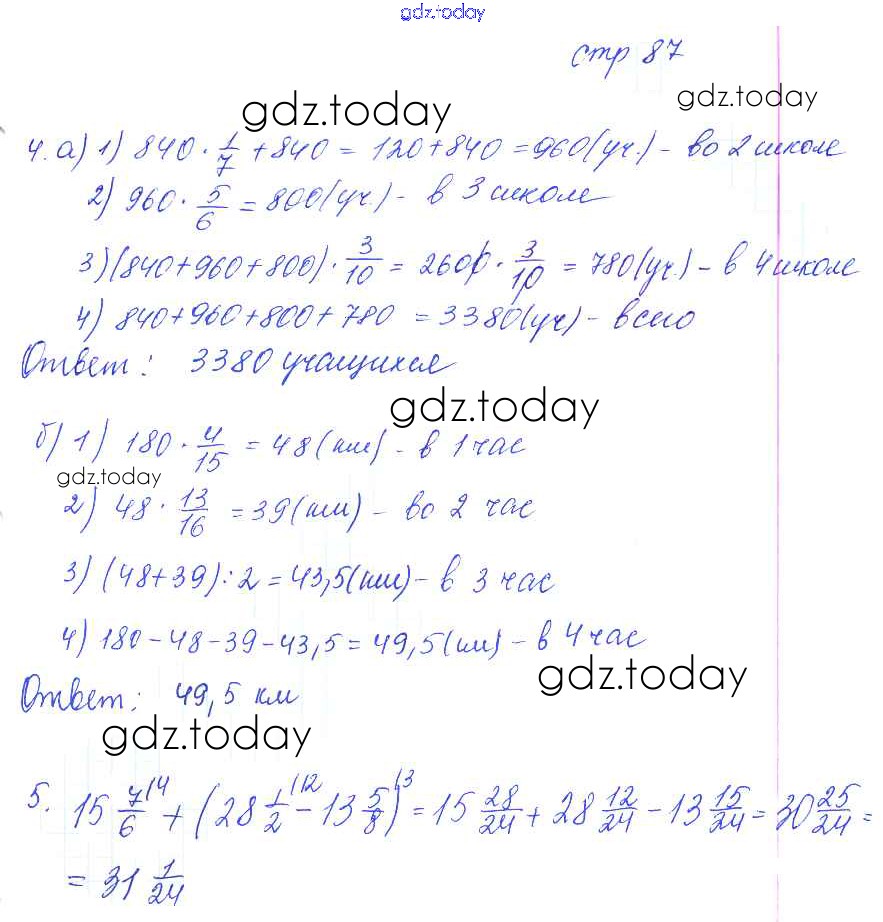 gdz.today
стр 87
gdz.today
gdz.today
4. а) 1) 840 · 1/7 + 840 = 120 + 840 = 960 (уч.) - во 2 школе
2) 960 · 5/6 = 800 (уч.) - в 3 школе
3) (840+960+800) · 3/10 = 2600 · 3/10 = 780 (уч.) - в 4 школе
4) 840+960+800+780 = 3380 (уч) - всего
Ответ: 3380 учащихся
gdz.today
б) 1) 180 · 4/15 = 48 (км) - в 1 час
gdz.today
2) 48 · 13/16 = 39 (км) - во 2 час
3) (48+39) : 2 = 43,5 (км) - в 3 час
4) 180-48-39-43,5 = 49,5 (км) - в 4 час
gdz.today
Ответ: 49,5 км
gdz.today
5. 15 7/6 (4 + (28 1/2 (12 - 13 5/8) (3 = 15 28/24 + 28 12/24 - 13 15/24 = 30 25/24 =
= 31 1/24